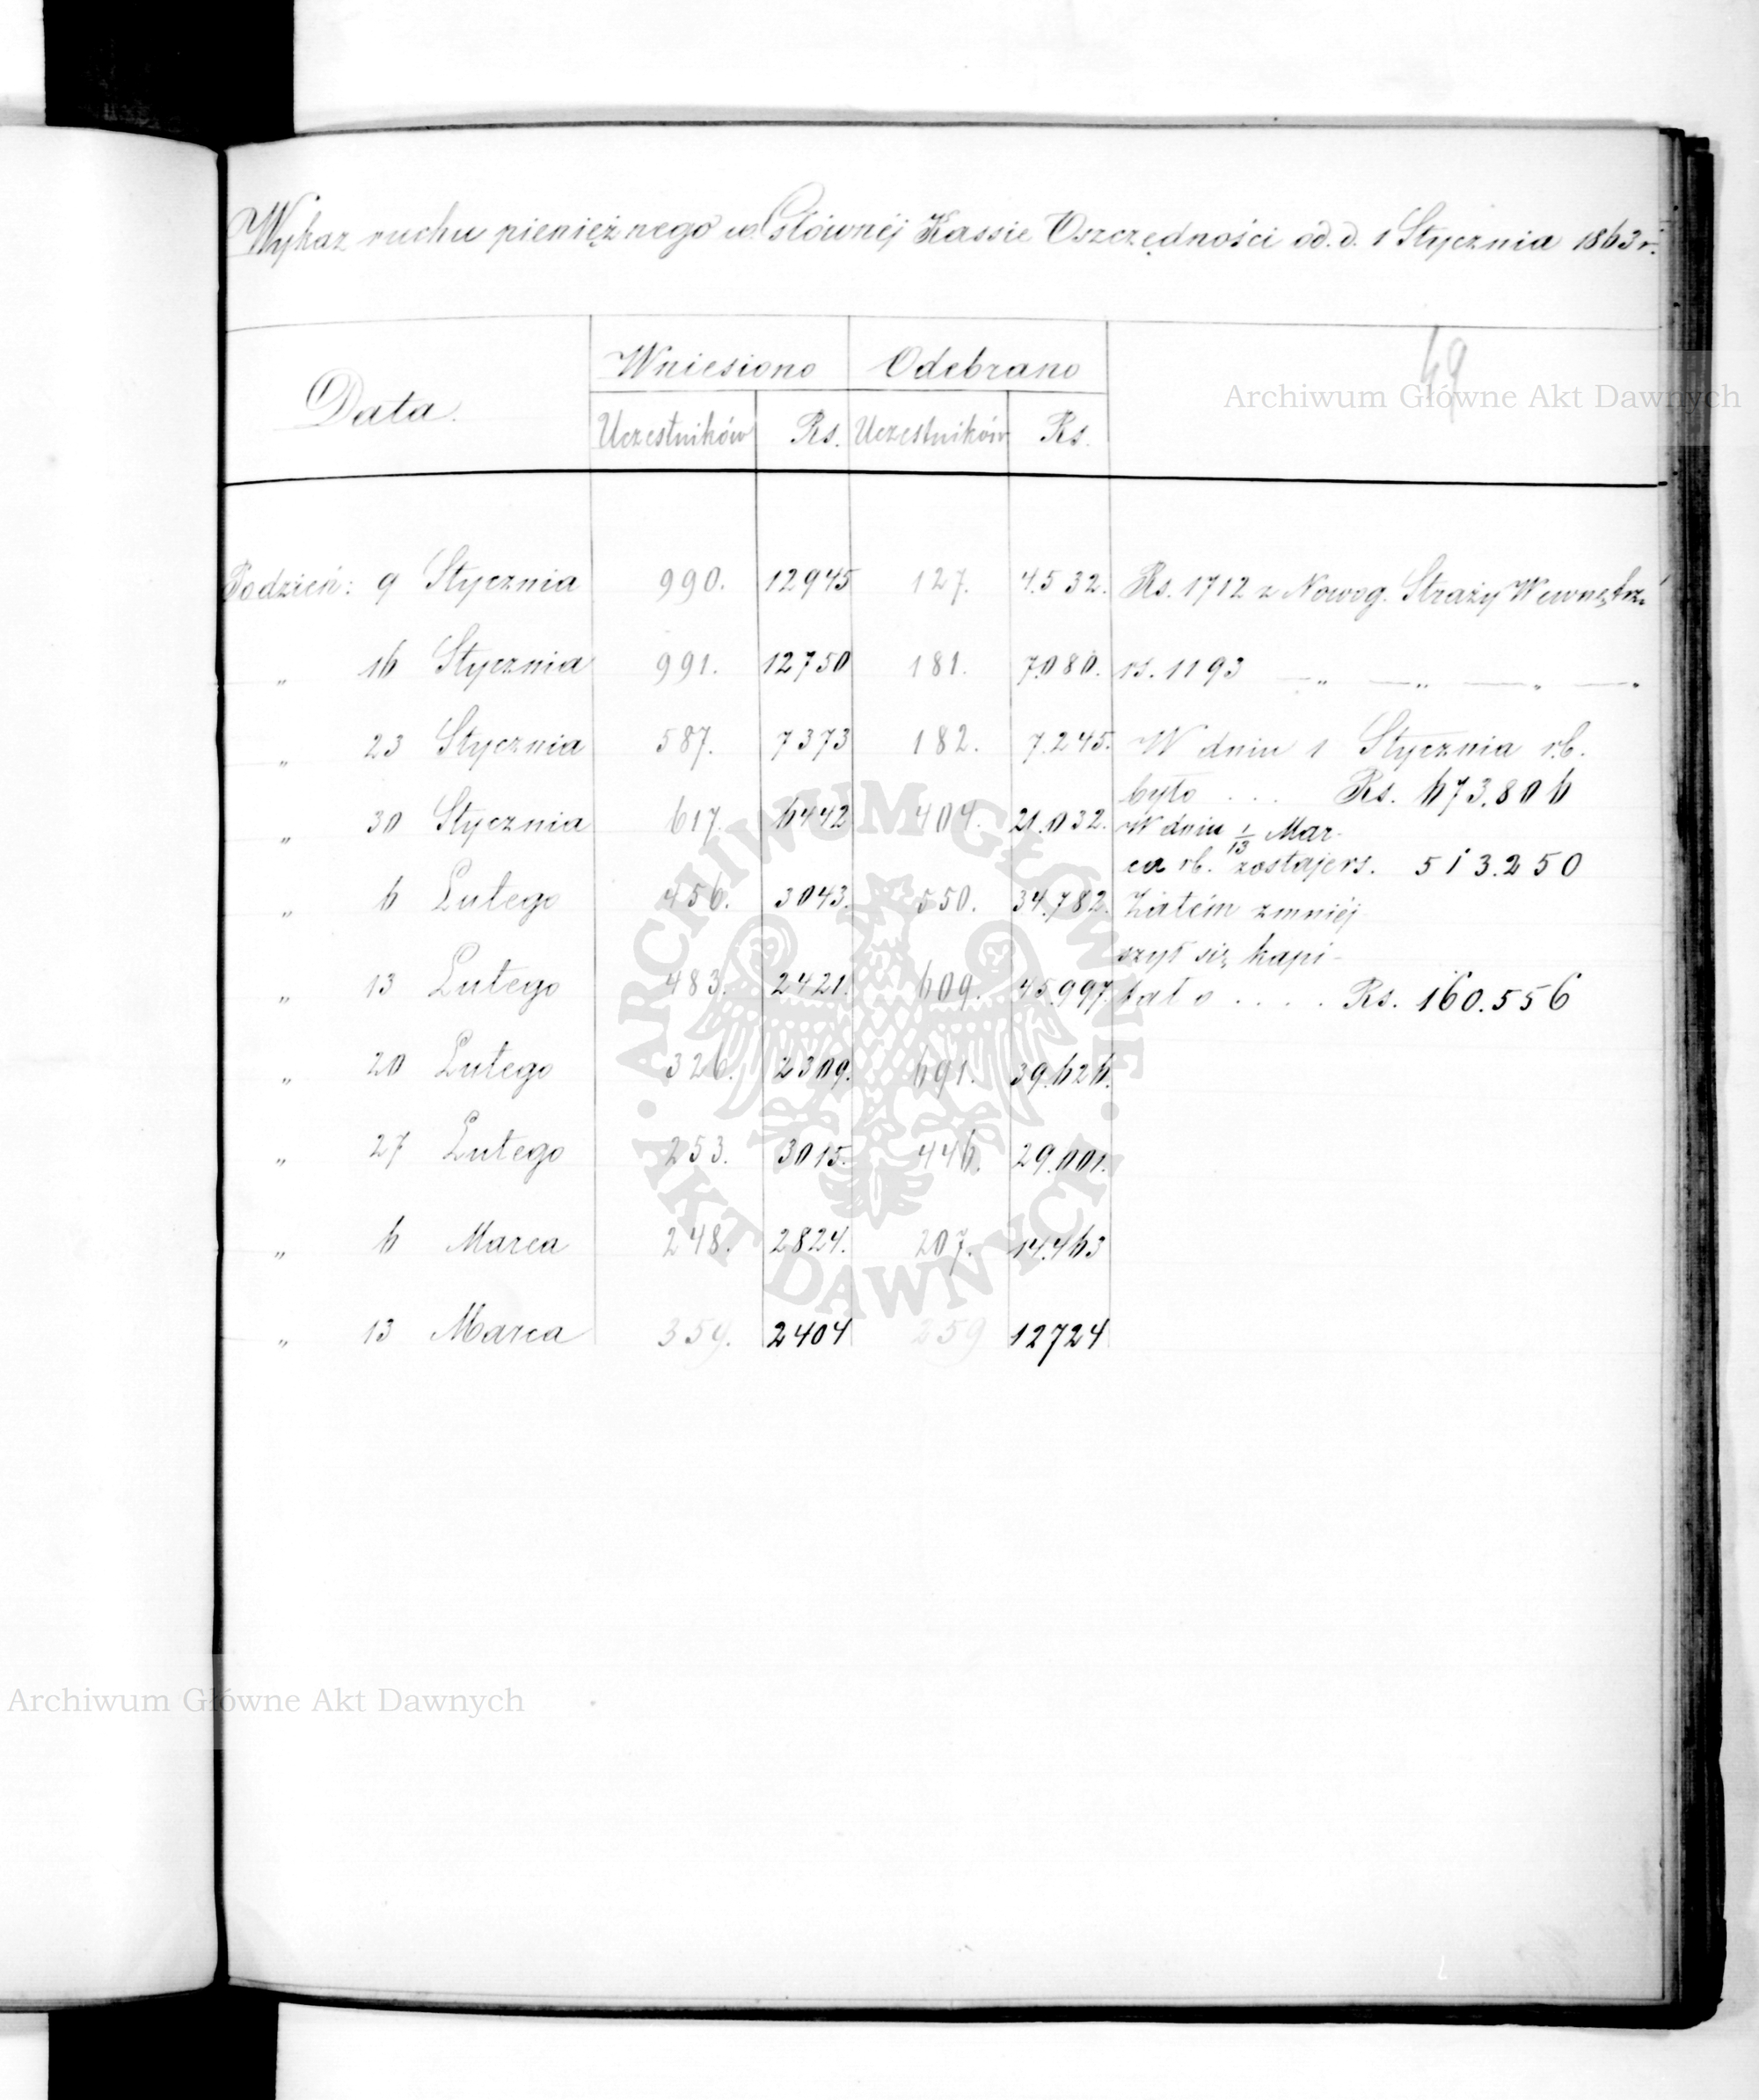 Wykaz ruchu pieniężnego w Głównéj Kassie Oszczędności od d. 1 Stycznia 1863 r.
49
Archiwum Główne Akt Dawnych
Data. Wniesiono Odebrano
Uczestników Rs. Uczestników Rs.
Podzień: 9 Stycznia 990. 12945 127. 4.532. Rs. 1712 z Nowog. Straży Wewnętrz.
„ 16 Stycznia 991. 12750 181. 7.080. rs. 1193 —„ —„ —„ —„
„ 23 Stycznia 587. 7373 182. 7.245. W dniu 1 Stycznia rb.
było . . . Rs. 673.806
„ 30 Stycznia 617. 6442 404. 21.032. W dniu 1/13 Mar-
ca rb. zostaje rs. 513.250
„ 6 Lutego 456. 3043. 550. 34.782. Zatém zmniéj-
szył się kapi-
„ 13 Lutego 483. 2421. 609. 45.997. tał o . . . . Rs. 160.556
„ 20 Lutego 326. 2309. 691. 39.626.
„ 27 Lutego 253. 3015. 446. 29.001.
„ 6 Marca 248. 2824. 207. 14.463
„ 13 Marca 359. 2404 259 12724
ARCHIWUM GŁÓWNE
AKT DAWNYCH
Archiwum Główne Akt Dawnych